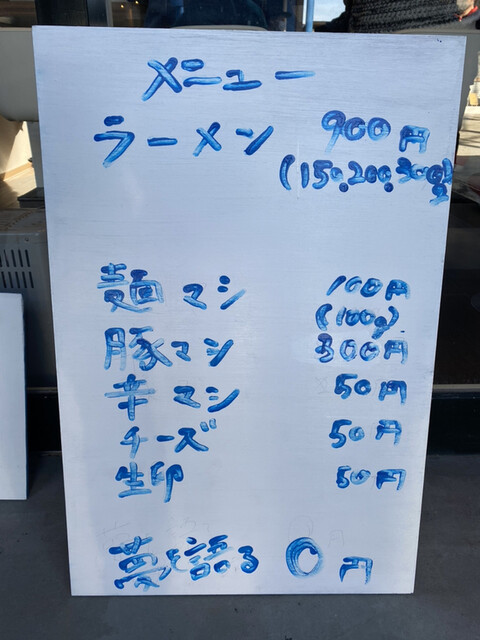 メニュー
ラーメン 900円
(150,200,300g)
麺マシ 100円
(100g)
豚マシ 300円
辛マシ 50円
チーズ 50円
生卵 50円
夢を語る 0円